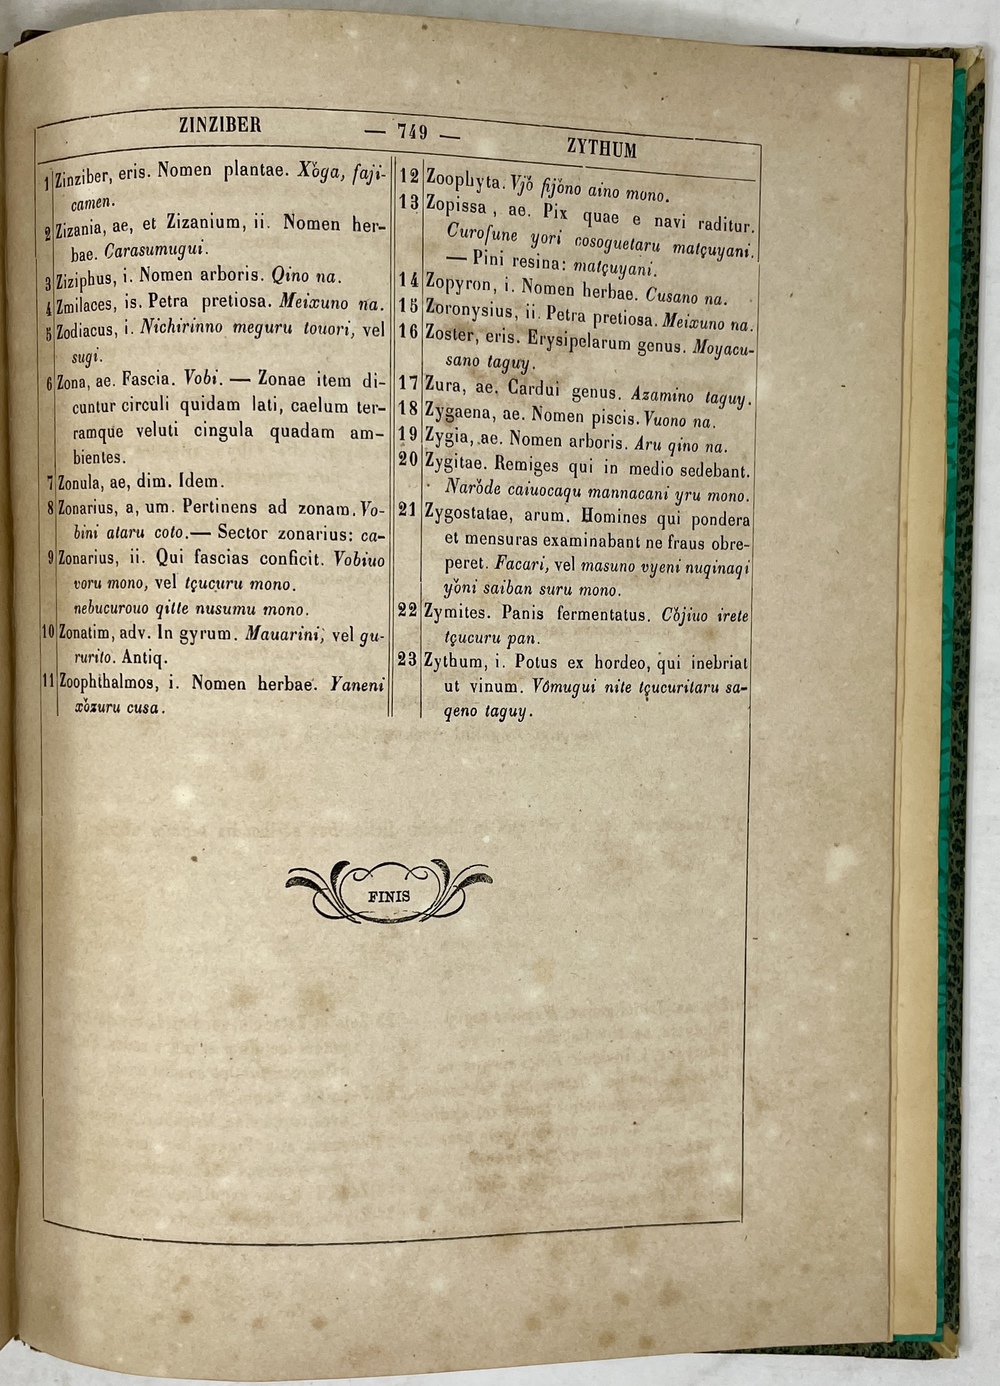 ZINZIBER — 749 — ZYTHUM
1 Zinziber, eris. Nomen plantae. Xǒga, faji-
camen.
2 Zizania, ae, et Zizanium, ii. Nomen her-
bae. Carasumugui.
3 Ziziphus, i. Nomen arboris. Qino na.
4 Zmilaces, is. Petra pretiosa. Meixuno na.
5 Zodiacus, i. Nichirinno meguru touori, vel
sugi.
6 Zona, ae. Fascia. Vobi. — Zonae item di-
cuntur circuli quidam lati, caelum ter-
ramque veluti cingula quadam am-
bientes.
7 Zonula, ae, dim. Idem.
8 Zonarius, a, um. Pertinens ad zonam. Vo-
bini ataru coto. — Sector zonarius: ca-
9 Zonarius, ii. Qui fascias conficit. Vobiuo
voru mono, vel tçucuru mono.
nebucurouo qitte nusumu mono.
10 Zonatim, adv. In gyrum. Mauarini, vel gu-
rurito. Antiq.
11 Zoophthalmos, i. Nomen herbae. Yaneni
xǒzuru cusa.
12 Zoophyta. Vjǒ fijǒno aino mono.
13 Zopissa, ae. Pix quae e navi raditur.
Curofune yori cosoguetaru matçuyani.
— Pini resina: matçuyani.
14 Zopyron, i. Nomen herbae. Cusano na.
15 Zoronysius, ii. Petra pretiosa. Meixuno na.
16 Zoster, eris. Erysipelarum genus. Moyacu-
sano taguy.
17 Zura, ae. Cardui genus. Azamino taguy.
18 Zygaena, ae. Nomen piscis. Vuono na.
19 Zygia, ae. Nomen arboris. Aru qino na.
20 Zygitae. Remiges qui in medio sedebant.
Narǒde caiuocaqu mannacani yru mono.
21 Zygostatae, arum. Homines qui pondera
et mensuras examinabant ne fraus obre-
peret. Facari, vel masuno vyeni nuqinaqi
yǒni saiban suru mono.
22 Zymites. Panis fermentatus. Cǒjiuo irete
tçucuru pan.
23 Zythum, i. Potus ex hordeo, qui inebriat
ut vinum. Vômugui nite tçucuritaru sa-
qeno taguy.
FINIS